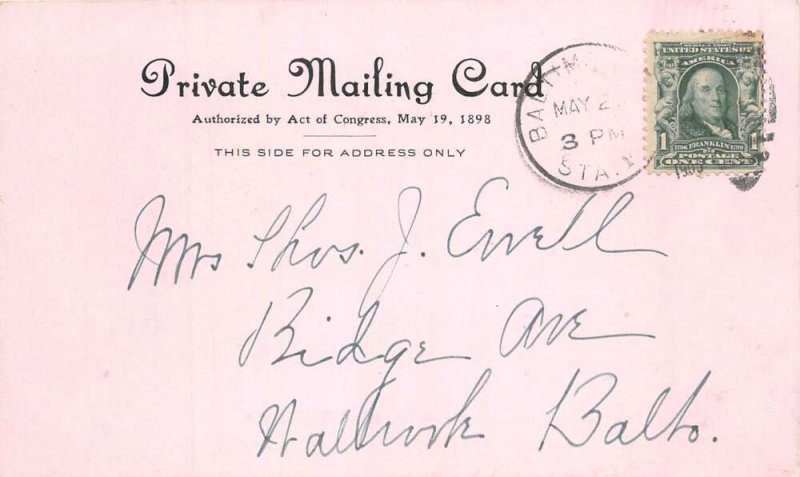 Private Mailing Card
Authorized by Act of Congress, May 19, 1898
THIS SIDE FOR ADDRESS ONLY
MAY 2
3 PM
STA. 
SERIES 1902
UNITED STATES OF
AMERICA
1 1706 FRANKLIN 1790 1
POSTAGE
ONE CENT
Mrs Thos. J. Ewell
Ridge Ave
Walbrook Balto.